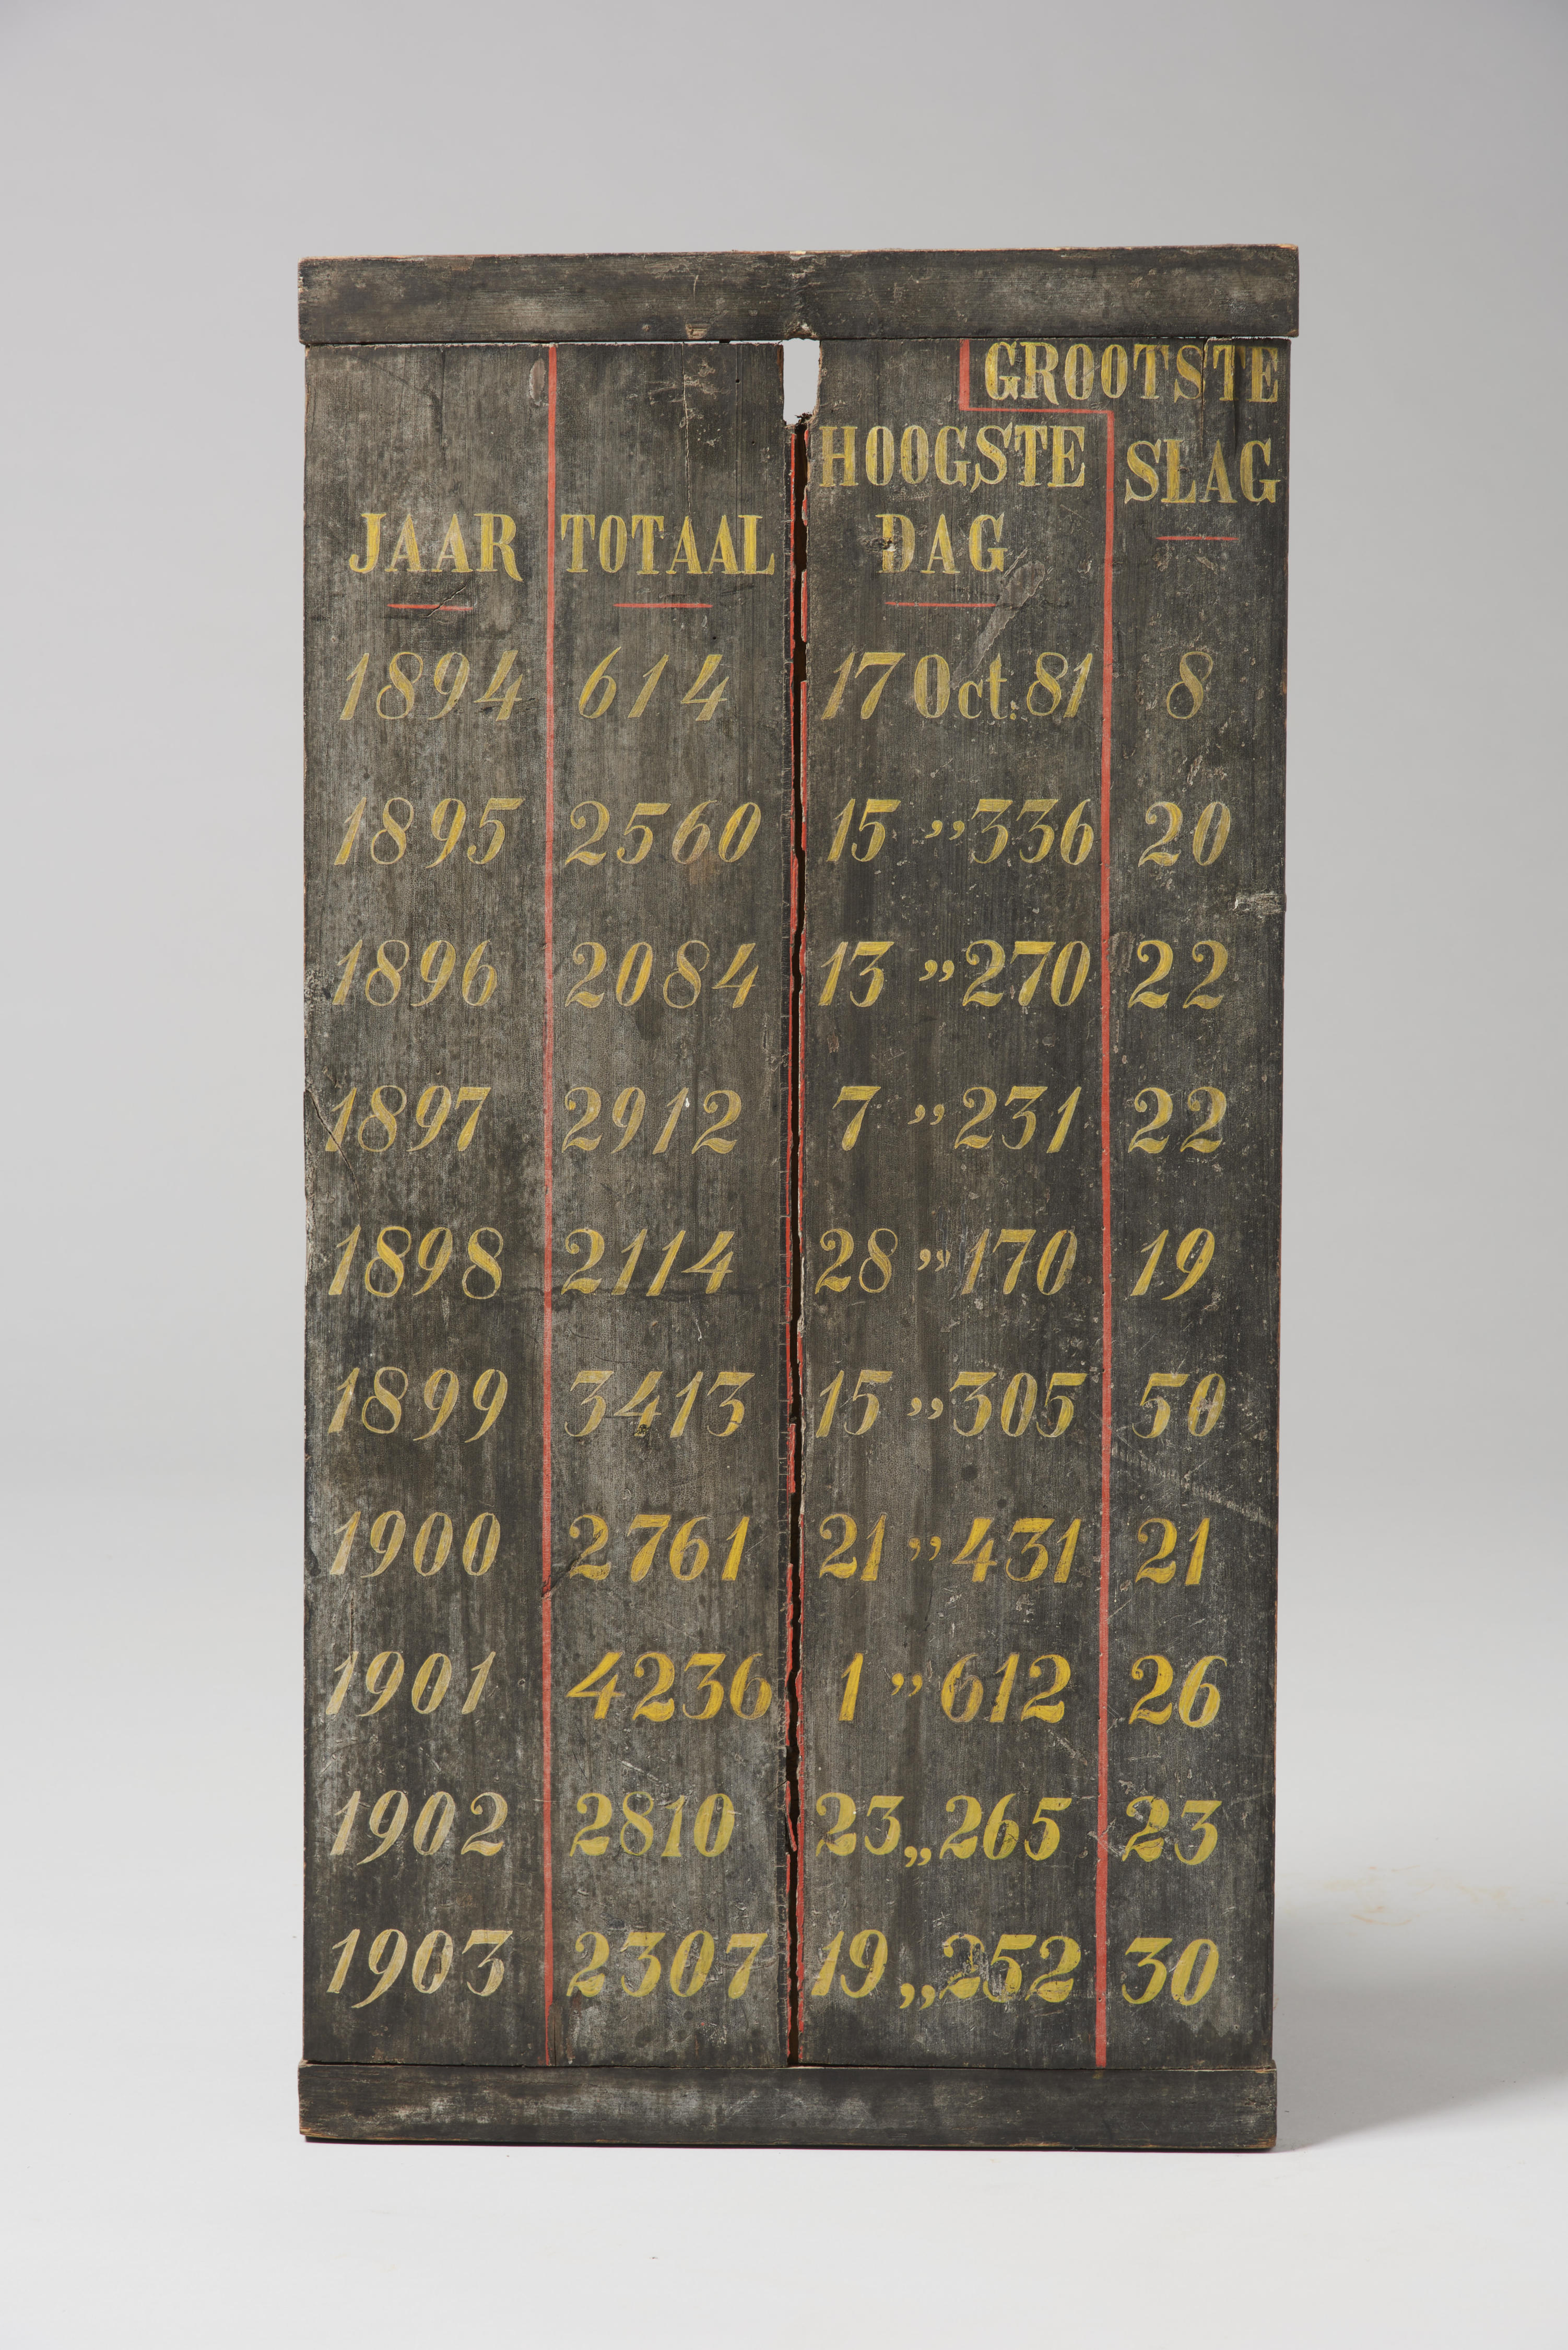 GROOTSTE
HOOGSTE SLAG
JAAR TOTAAL DAG
1894 614 17 Oct: 81 8
1895 2560 15 ,, 336 20
1896 2084 13 ,, 270 22
1897 2912 7 ,, 231 22
1898 2114 28 ,, 170 19
1899 3413 15 ,, 305 50
1900 2761 21 ,, 431 21
1901 4236 1 ,, 612 26
1902 2810 23 ,, 265 23
1903 2307 19 ,, 252 30